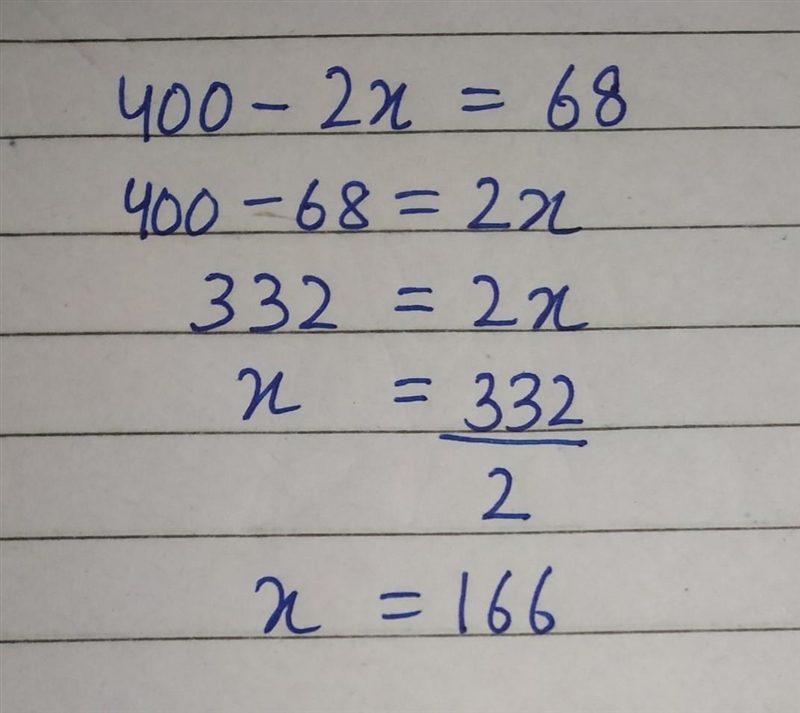 400 - 2x = 68
400 - 68 = 2x
332 = 2x
x = 332/2
x = 166